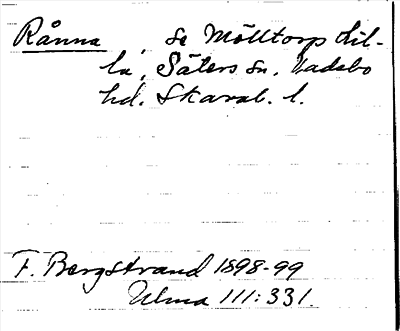 Rånna, se Mölltorps Lil-
la, Säters sn. Vadsbo
hd. Skarab. l.
F. Bergstrand 1898-99
Ulma 111:331.